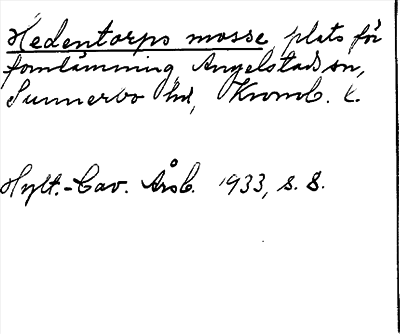 Hedentorps mosse, plats för
fornlämning, Angelstads sn,
Sunnerbo hd, Kronob. l.
Hylt.-Cav. Årsb. 1933, s. 8.